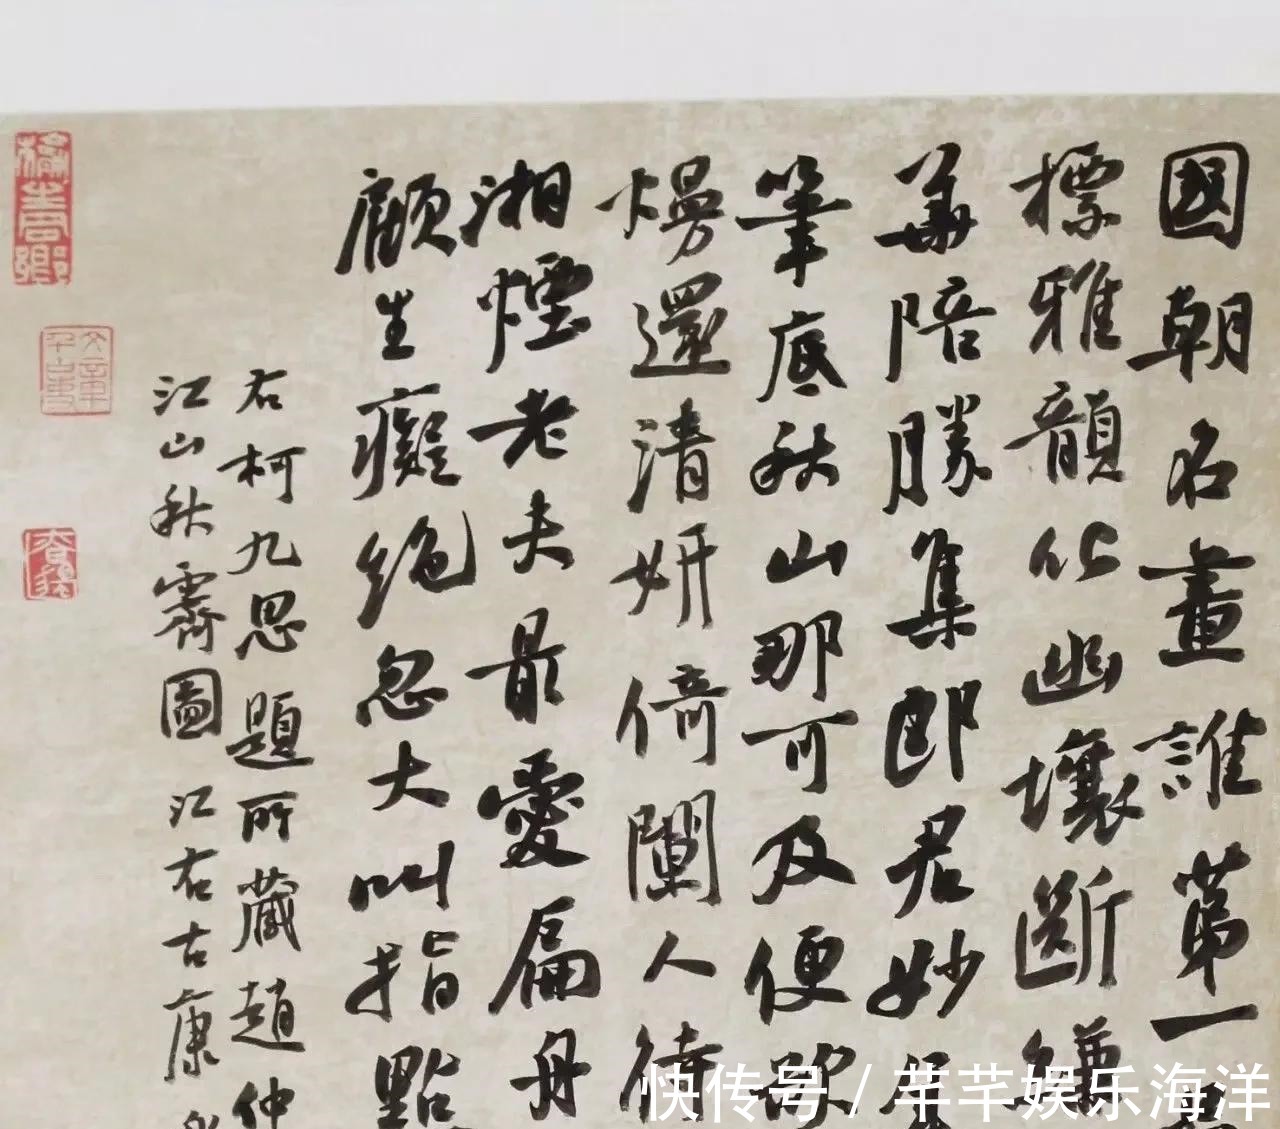 國朝名畫誰第一
標雅韻化幽壤斷縑
華陪勝集郎君妙年
筆底秋山那可及便欲
熳還清妍倚闌人待
湘煙老夫最愛扁舟
顧生癡絕忽大叫指點
右柯九思題所藏趙仲
江山秋霽圖江右古康
快传号/芊芊娱乐海洋